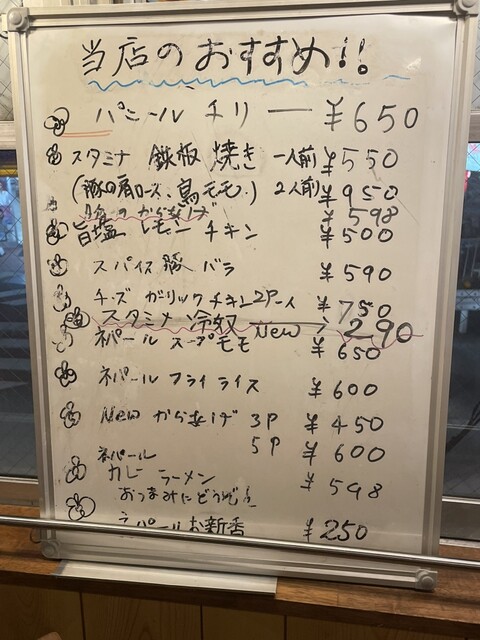 当店のおすすめ!!
パニールチリ — ¥650
スタミナ 鉄板焼き 一人前 ¥550
(豚の肩ロース、鳥モモ) 2人前 ¥950
のからあげ ¥598
旨塩レモンチキン ¥500
スパイス豚バラ ¥590
チーズガーリックチキン2Pース ¥750
スタミナ冷奴 New → 290
ネパールスープモモ ¥650
ネパールフライライス ¥600
New からあげ 3P ¥450
5P ¥600
ネパール
カレーラーメン ¥598
おつまみにどうぞ!
ネパールお新香 ¥250